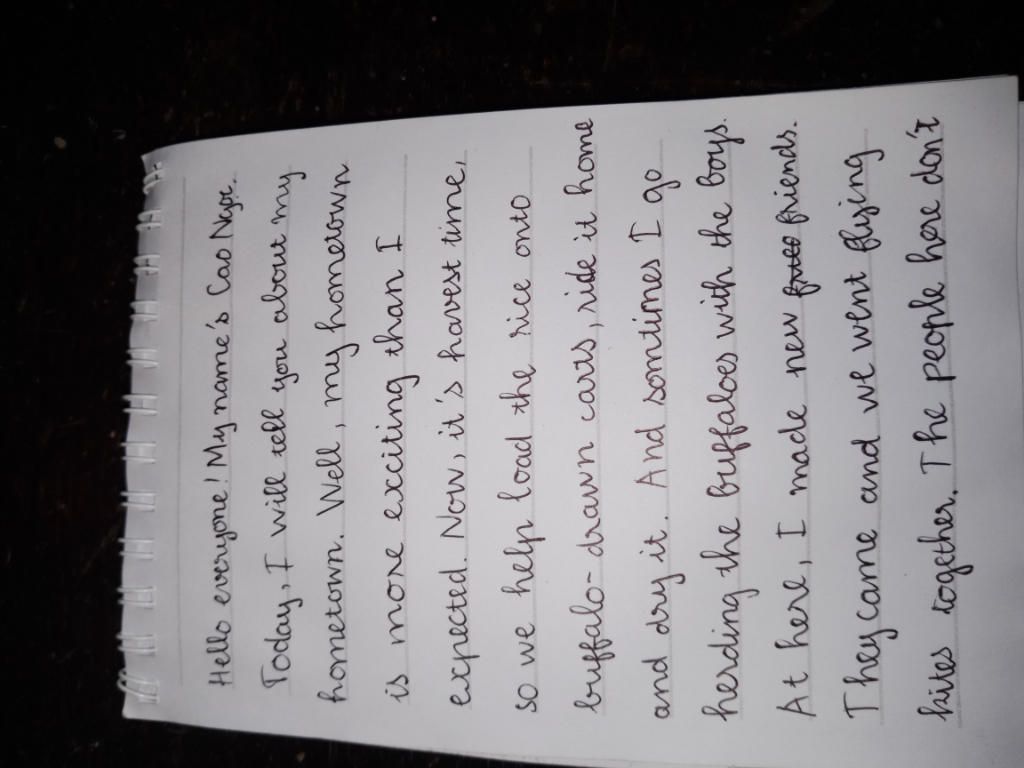 Hello everyone! My name's Cao Ngoc.
Today, I will tell you about my
hometown. Well, my hometown
is more exciting than I
expected. Now, it's harvest time,
so we help load the rice onto
buffalo-drawn carts, ride it home
and dry it. And somtimes I go
herding the buffaloes with the boys.
At here, I made new friends.
They came and we went flying
kites together. The people here don't